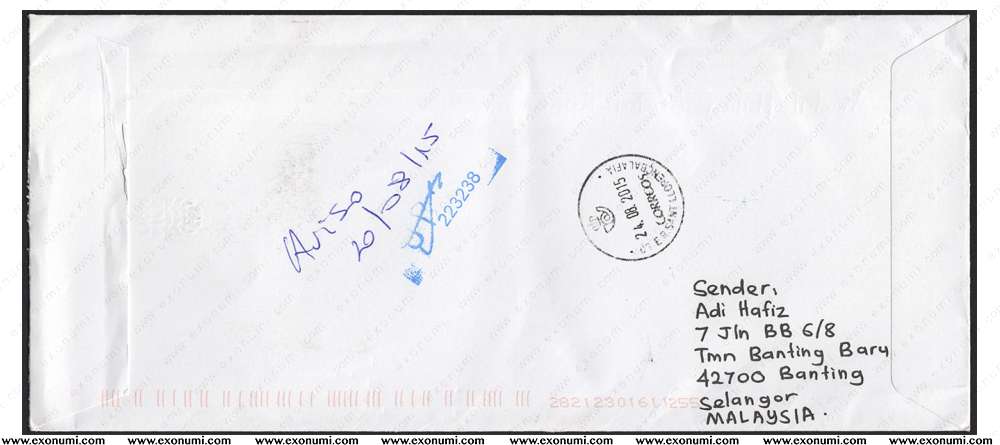 Aviso
20/08/15
223238
SANT LLORENÇ BALAFIA
CORREOS
24.08.2015
Sender,
Adi Hafiz
7 Jln BB 6/8
Tmn Banting Baru
42700 Banting
Selangor
MALAYSIA.
www.exonumi.com www.exonumi.com www.exonumi.com www.exonumi.com www.exonumi.com www.exonumi.com www.exonumi.com www.exonumi.com